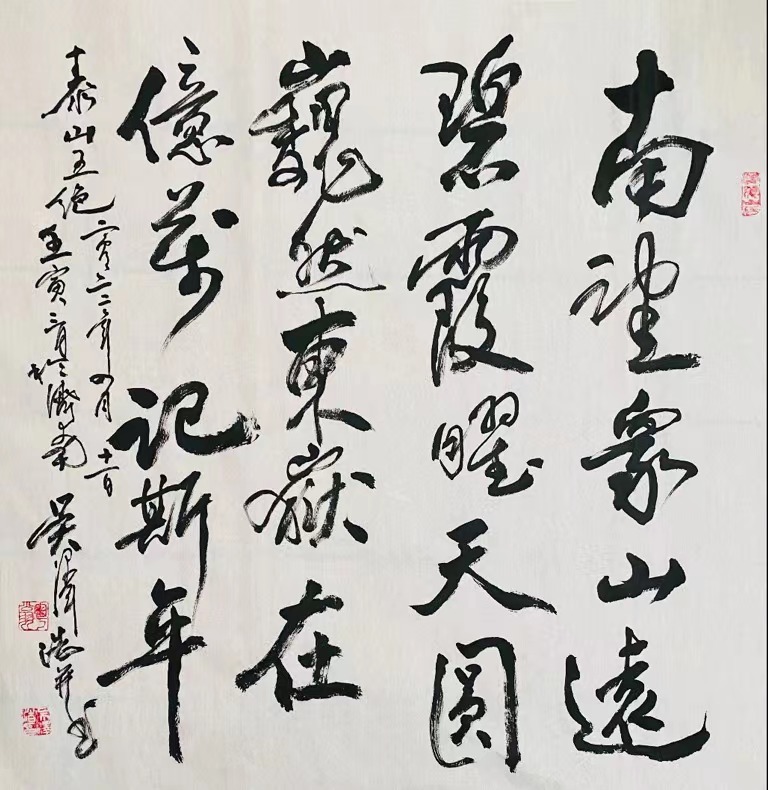 南望衆山遠
碧霞曜天圓
巍然東嶽在
億萬記斯年
泰山五绝 二零二二年四月十一日
壬寅三月於濟南 吴澤浩并书